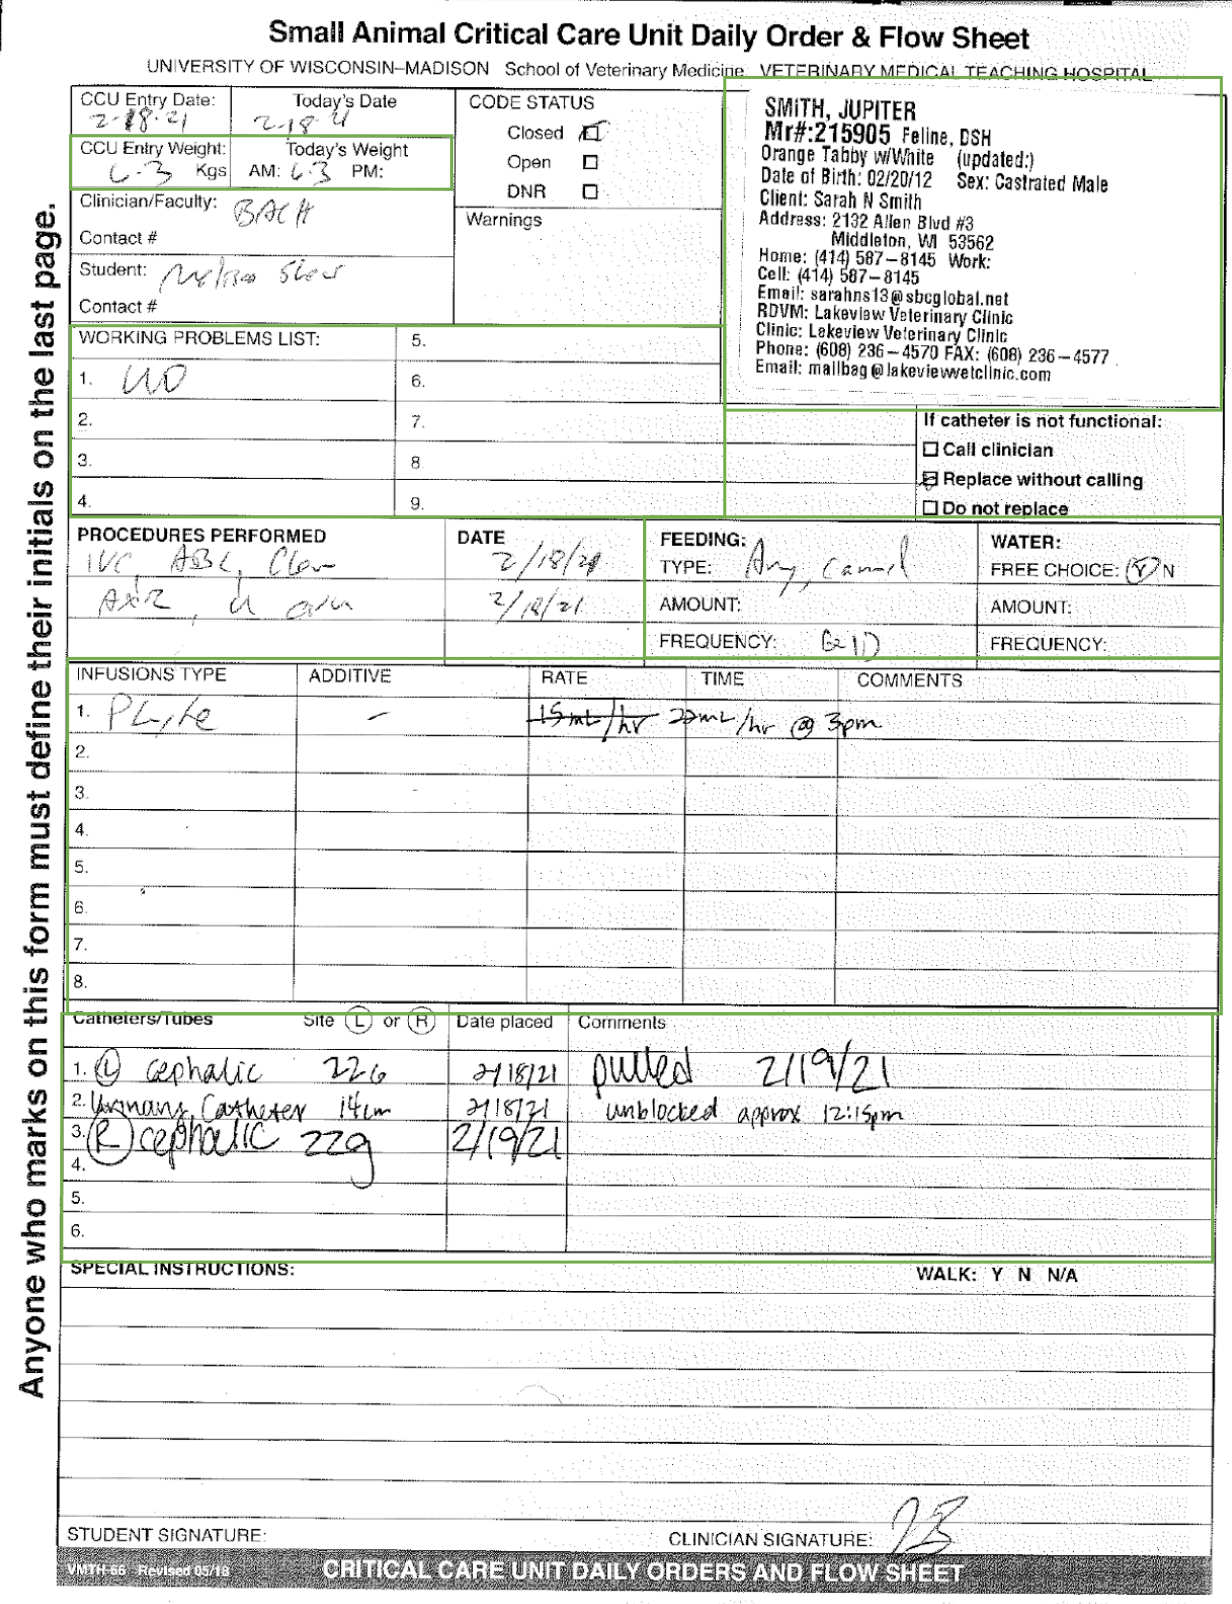 Small Animal Critical Care Unit Daily Order & Flow Sheet
UNIVERSITY OF WISCONSIN–MADISON School of Veterinary Medicine VETERINARY MEDICAL TEACHING HOSPITAL
Anyone who marks on this form must define their initials on the last page.
CCU Entry Date: 2-18-21
Today's Date 2-18-21
CCU Entry Weight: 6.3 Kgs
Today's Weight
AM: 6.3 PM:
Clinician/Faculty: BACH
Contact #
Student: Melissa
Contact #
CODE STATUS
Closed
Open
DNR
Warnings
SMITH, JUPITER
Mr#:215905 Feline, DSH
Orange Tabby w/White (updated:)
Date of Birth: 02/20/12 Sex: Castrated Male
Client: Sarah N Smith
Address: 2132 Allen Blvd #3
Middleton, WI 53562
Home: (414) 587-8145 Work:
Cell: (414) 587-8145
Email: sarahns13@sbcglobal.net
RDVM: Lakeview Veterinary Clinic
Clinic: Lakeview Veterinary Clinic
Phone: (608) 236-4570 FAX: (608) 236-4577
Email: mailbag@lakeviewvetclinic.com
WORKING PROBLEMS LIST:
1. UO
2.
3.
4.
5.
6.
7.
8.
9.
If catheter is not functional:
Call clinician
Replace without calling
Do not replace
PROCEDURES PERFORMED DATE
IVC, 2/18/21
AXR, 2/18/21
FEEDING:
TYPE: Any, Canned
AMOUNT:
FREQUENCY: BID
WATER:
FREE CHOICE: Y N
AMOUNT:
FREQUENCY:
INFUSIONS TYPE ADDITIVE RATE TIME COMMENTS
1. PLyte – 15mL/hr 22mL/hr @ 3pm
2.
3.
4.
5.
6.
7.
8.
Catheters/Tubes Site L or R Date placed Comments
1. L cephalic 22G 2/18/21 pulled 2/19/21
2. Urinary Catheter 14cm 2/18/21 unblocked approx 12:15pm
3. R cephalic 22g 2/19/21
4.
5.
6.
SPECIAL INSTRUCTIONS: WALK: Y N N/A
STUDENT SIGNATURE: CLINICIAN SIGNATURE:
VMTH-66 Revised 05/18 CRITICAL CARE UNIT DAILY ORDERS AND FLOW SHEET